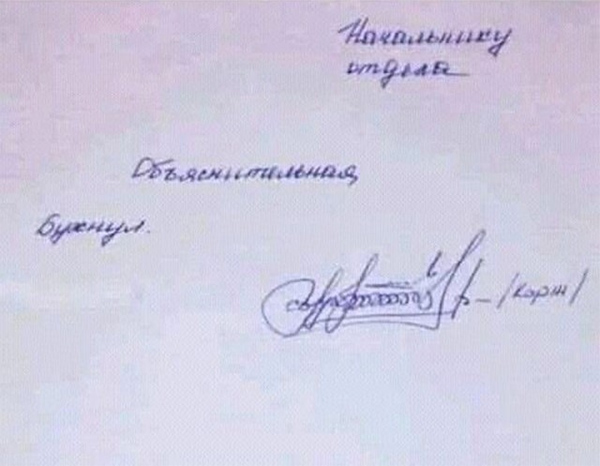 Начальнику
отдела
Объяснительная
Бухнул.
/Корж/